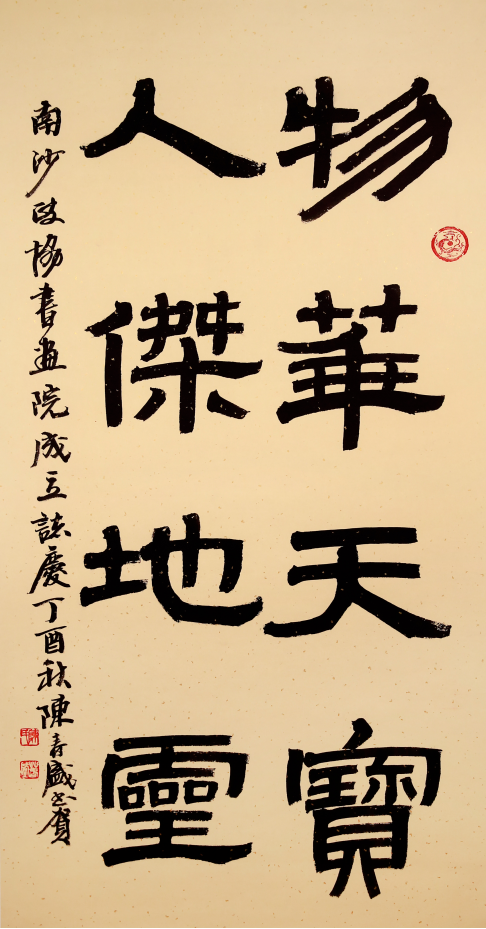 物華天寶
人傑地靈
南沙政協書畫院成立誌慶丁酉秋陳春盛書賀